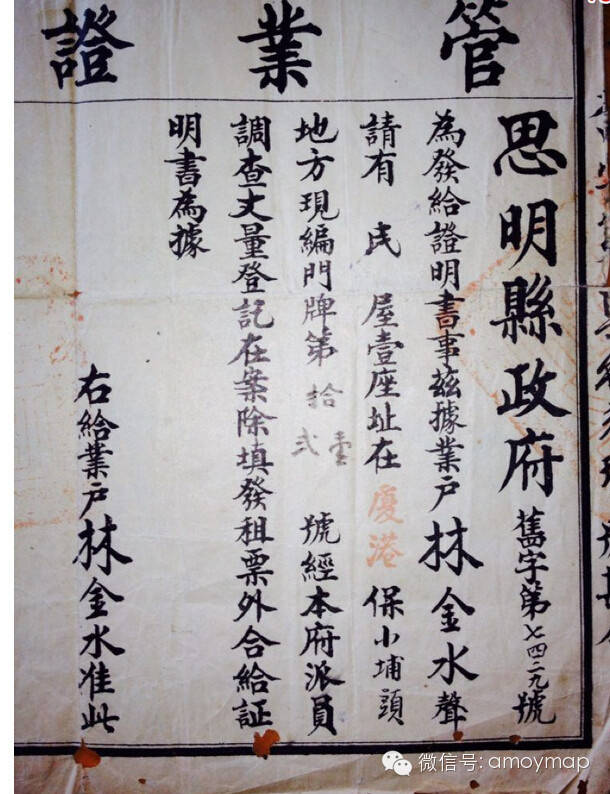 管業證
思明縣政府 舊字第七四二九號
為發給證明書事茲據業户林金水聲
請有民屋壹座址在廈港保小埔頭
地方現編門牌第拾壹弍號經本府派員
調查丈量登記在案除填發租票外合給証
明書為據
右給業户林金水准此
微信号: amoymap